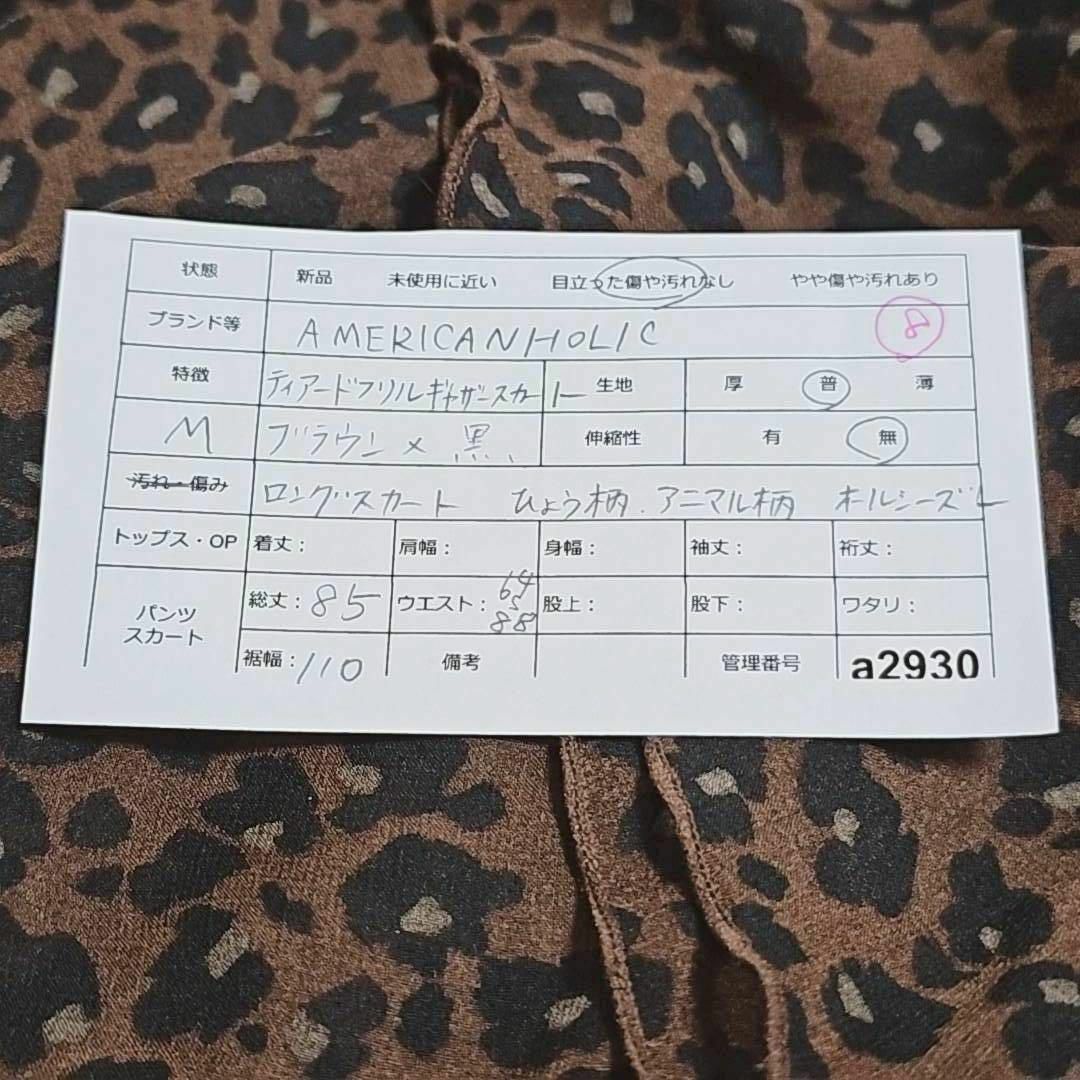 状態 新品 未使用に近い 目立った傷や汚れなし やや傷や汚れあり
ブランド等 AMERICANHOLIC 8
特徴 ティアードフリルギャザースカート 生地 厚 普 薄
M ブラウン×黒、 伸縮性 有 無
汚れ・傷み ロングスカート ひょう柄、アニマル柄 オールシーズン
トップス・OP 着丈: 肩幅: 身幅: 袖丈: 裄丈:
パンツ スカート 総丈:85 ウエスト:64 s 88 股上: 股下: ワタリ:
裾幅:110 備考 管理番号 a2930